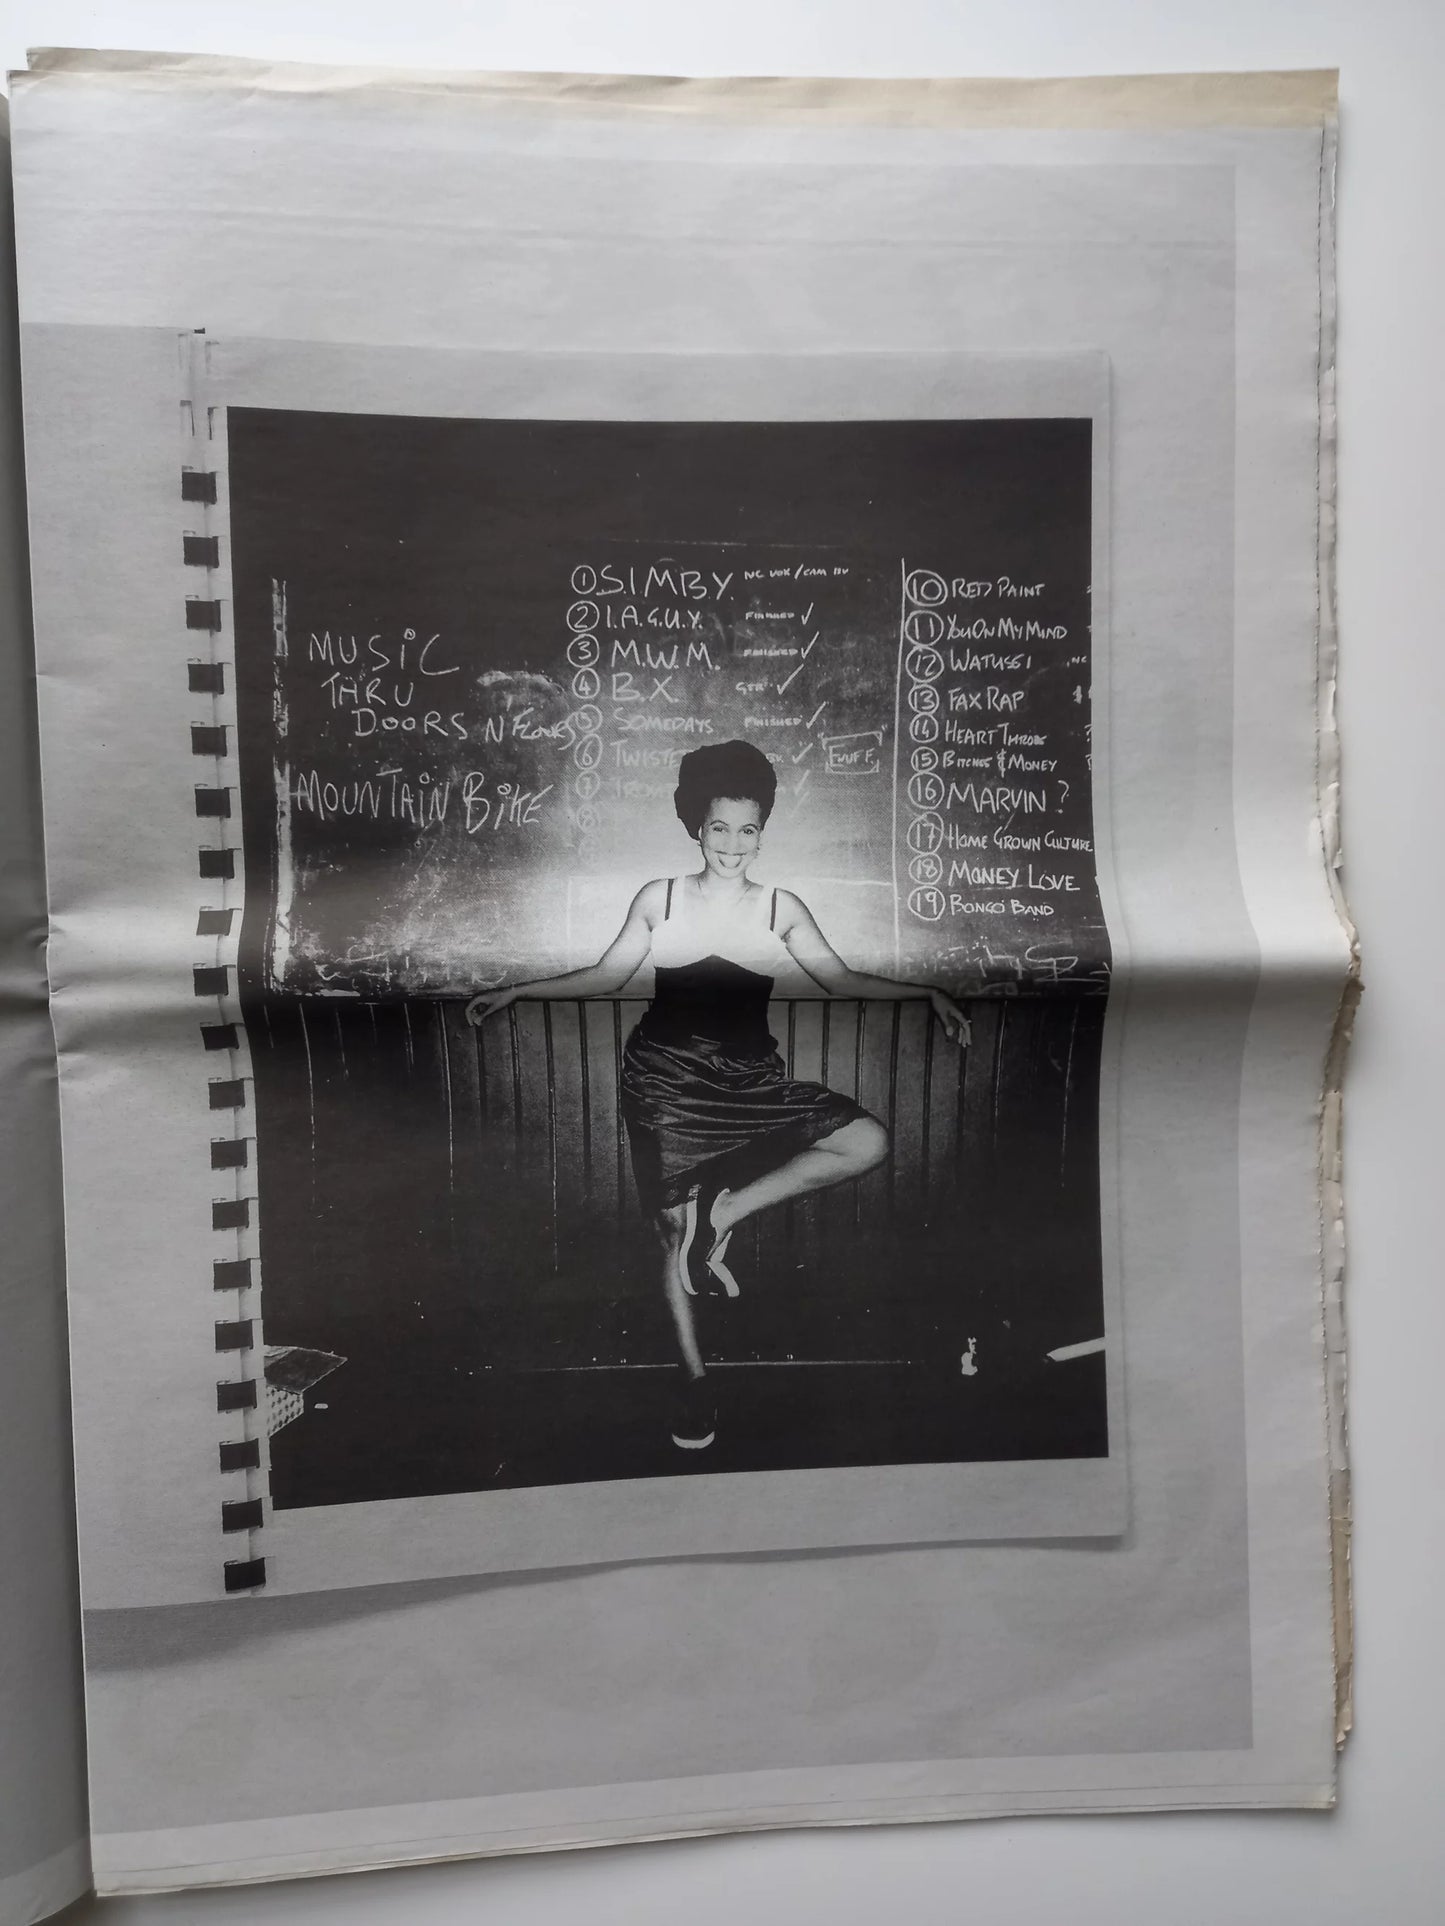 MUSIC
THRU
DOORS N FLOORS
MOUNTAIN BIKE
① S.I.M.B.Y. NC VOX / CAM BV
② I.A.G.U.Y. FINISHED ✓
③ M.W.M. FINISHED ✓
④ B.X. GTR ✓
⑤ SOMEDAYS FINISHED ✓
⑥ TWISTE ✓
⑦
⑧
⑩ RED PAINT
⑪ YOU ON MY MIND
⑫ WATUSSI
⑬ FAX RAP
⑭ HEART THROB
⑮ BITCHES & MONEY
⑯ MARVIN ?
⑰ HOME GROWN CULTURE
⑱ MONEY LOVE
⑲ BONGO BAND